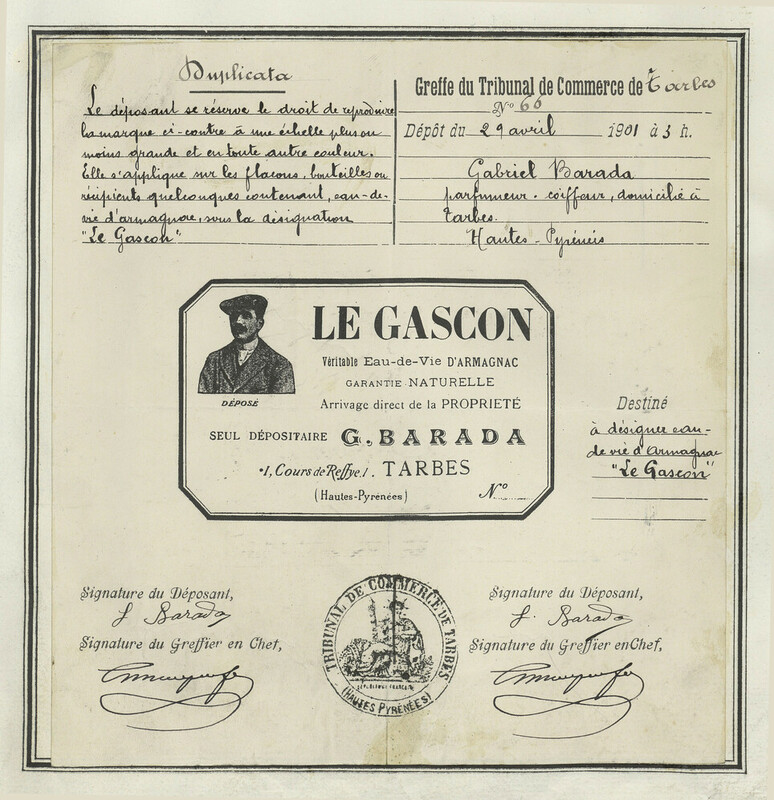 Duplicata
Le déposant se réserve le droit de reproduire
la marque ci-contre à une échelle plus ou
moins grande et en toute autre couleur.
Elle s'applique sur les flacons, bouteilles ou
récipients quelconques contenant, eau-de-
vie d'armagnac, sous la désignation
"Le Gascon"
Greffe du Tribunal de Commerce de Tarbes
N° 66
Dépôt du 29 avril 1901 à 3 h.
Gabriel Barada
parfumeur. coiffeur, domicilié à
Tarbes.
Hautes-Pyrénées
LE GASCON
Véritable Eau-de-Vie D'ARMAGNAC
GARANTIE NATURELLE
Arrivage direct de la PROPRIETÉ
DÉPOSÉ
SEUL DÉPOSITAIRE G. BARADA
1, Cours de Reffye, 1. TARBES
(Hautes-Pyrénées)
N°
Destiné
à désigner eau-
de vie d'Armagnac
"Le Gascon"
Signature du Déposant,
G. Barada
Signature du Greffier en Chef,
TRIBUNAL DE COMMERCE DE TARBES
RÉPUBLIQUE FRANÇAISE
(HAUTES PYRÉNÉES)
Signature du Déposant,
G. Barada
Signature du Greffier en Chef,